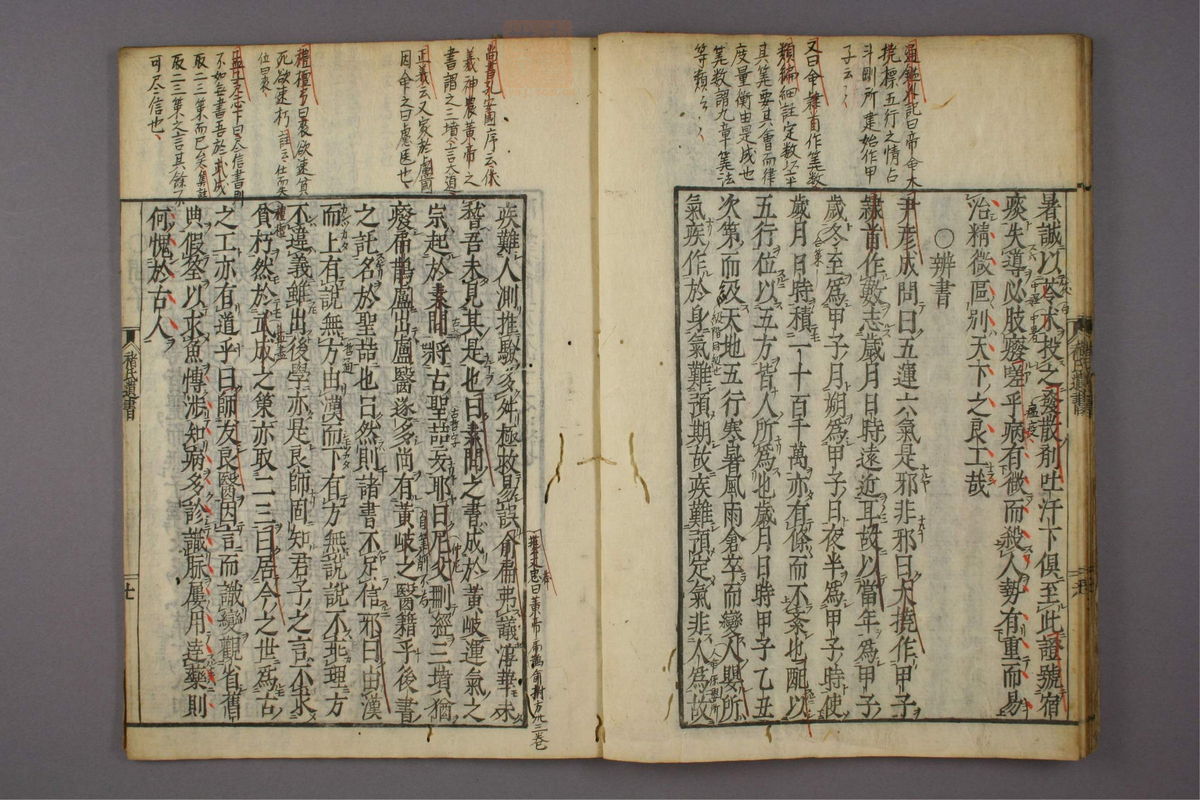 暑誠以苓朮投之發散剤吐汗下俱至此證號宿
痰失導必肢癈嗟乎病有微而殺人勢有重而易
治精微區別天下之良工哉
○辨書
尹彦成問曰五運六氣是邪非邪曰大撓作甲子
隷首作數志歲月日時遠近耳故以當年為甲子
歲冬至為甲子月朔為甲子日夜半為甲子時使
歲月日時積一十百千萬亦有條而不紊也配以
五行位以五方皆人所為也歲月日時甲子乙丑
次第而及天地五行寒暑風雨倉卒而變人嬰所
氣疾作於身氣難預期故疾難預定氣非人為故
疾難人測推驗多舛極救易誤俞扁弗議淳華未
稽吾未見其是也曰素問之書成於黃岐運氣之
宗起於素問將古聖喆妄耶曰尼父刪經三墳猶
癈扁鵲盧出盧醫遂多尚有黃岐之醫籍乎後書
之託名於聖喆也曰然則諸書不足信邪曰由漢
而上有說無方由漢而下有方無說說不乖理方
不違義雖出後學亦是良師固知君子之言不求
貧朽然於武成之策亦取二三曰居今之世為古
之工亦有道乎曰師友良醫因言而識變觀省舊
典假筌以求魚愽涉知病多診識脉屢用達藥則
何愧於古人
褚氏遺書
七
通鑑外記曰帝命大
撓標五行之情占
斗剛所建始作甲
子云々
又曰命隷首作筭數
類編細註定數以平
其筭要其會而律
度量衡由是成也
筭数謂九章筭法
等類云々
尚書孔安國序云伏
羲神農黃帝之
書謂之三墳言大道
正義云又家於盧國
因命之曰盧医也
禮檀弓曰喪欲速貧
死欲速朽註云仕而失
位曰喪
孟子尽心下曰尽信書則
不如無書吾於武成
取二三策而已矣集註
取二三策之言其餘不
可尽信也